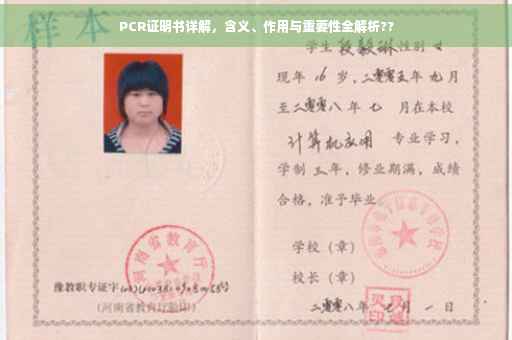 PCR证明书详解，含义、作用与重要性全解析??
样本
学生 段毅琳 性别 女
现年 16 岁，二零零五年 九 月
至 二零零八 年 七 月在本校
计算机应用 专业学习，
学制 三 年，修业期满，成绩
合格，准予毕业。
学校（章）
校长（章）
二零零八 年 七 月 一 日
河南省教育厅
豫教职专证字
（河南省教育厅验印）